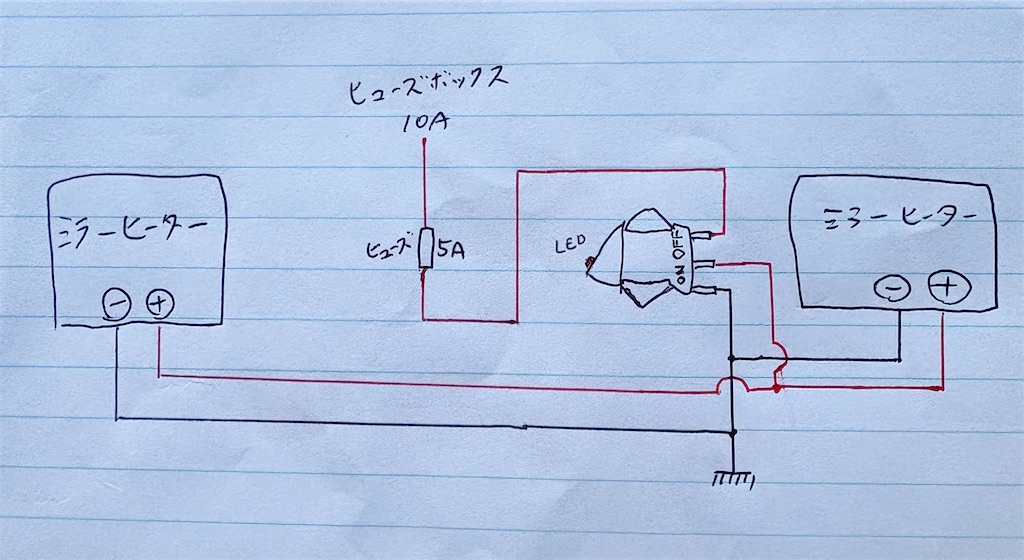 ヒューズボックス
10A
ミラーヒーター
ヒューズ 5A
LED
OFF
ON
ミラーヒーター
⊖ ⊕
⊖ ⊕